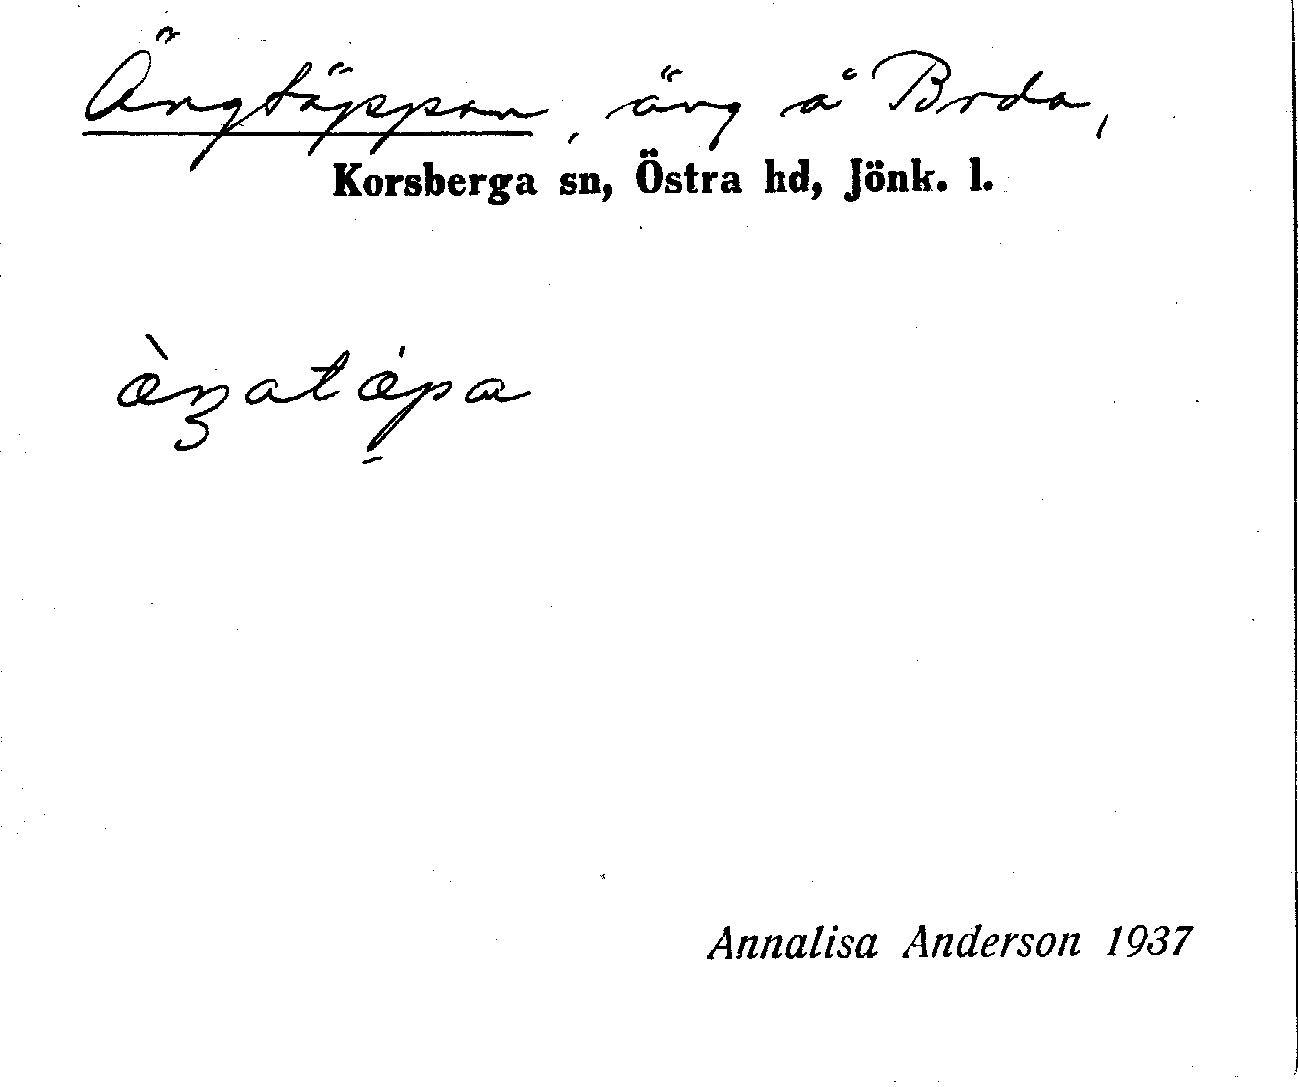 Ängtäppan, äng å Brda,
Korsberga sn, Östra hd, Jönk. l.
æ̀ŋatǽpa
Annalisa Anderson 1937